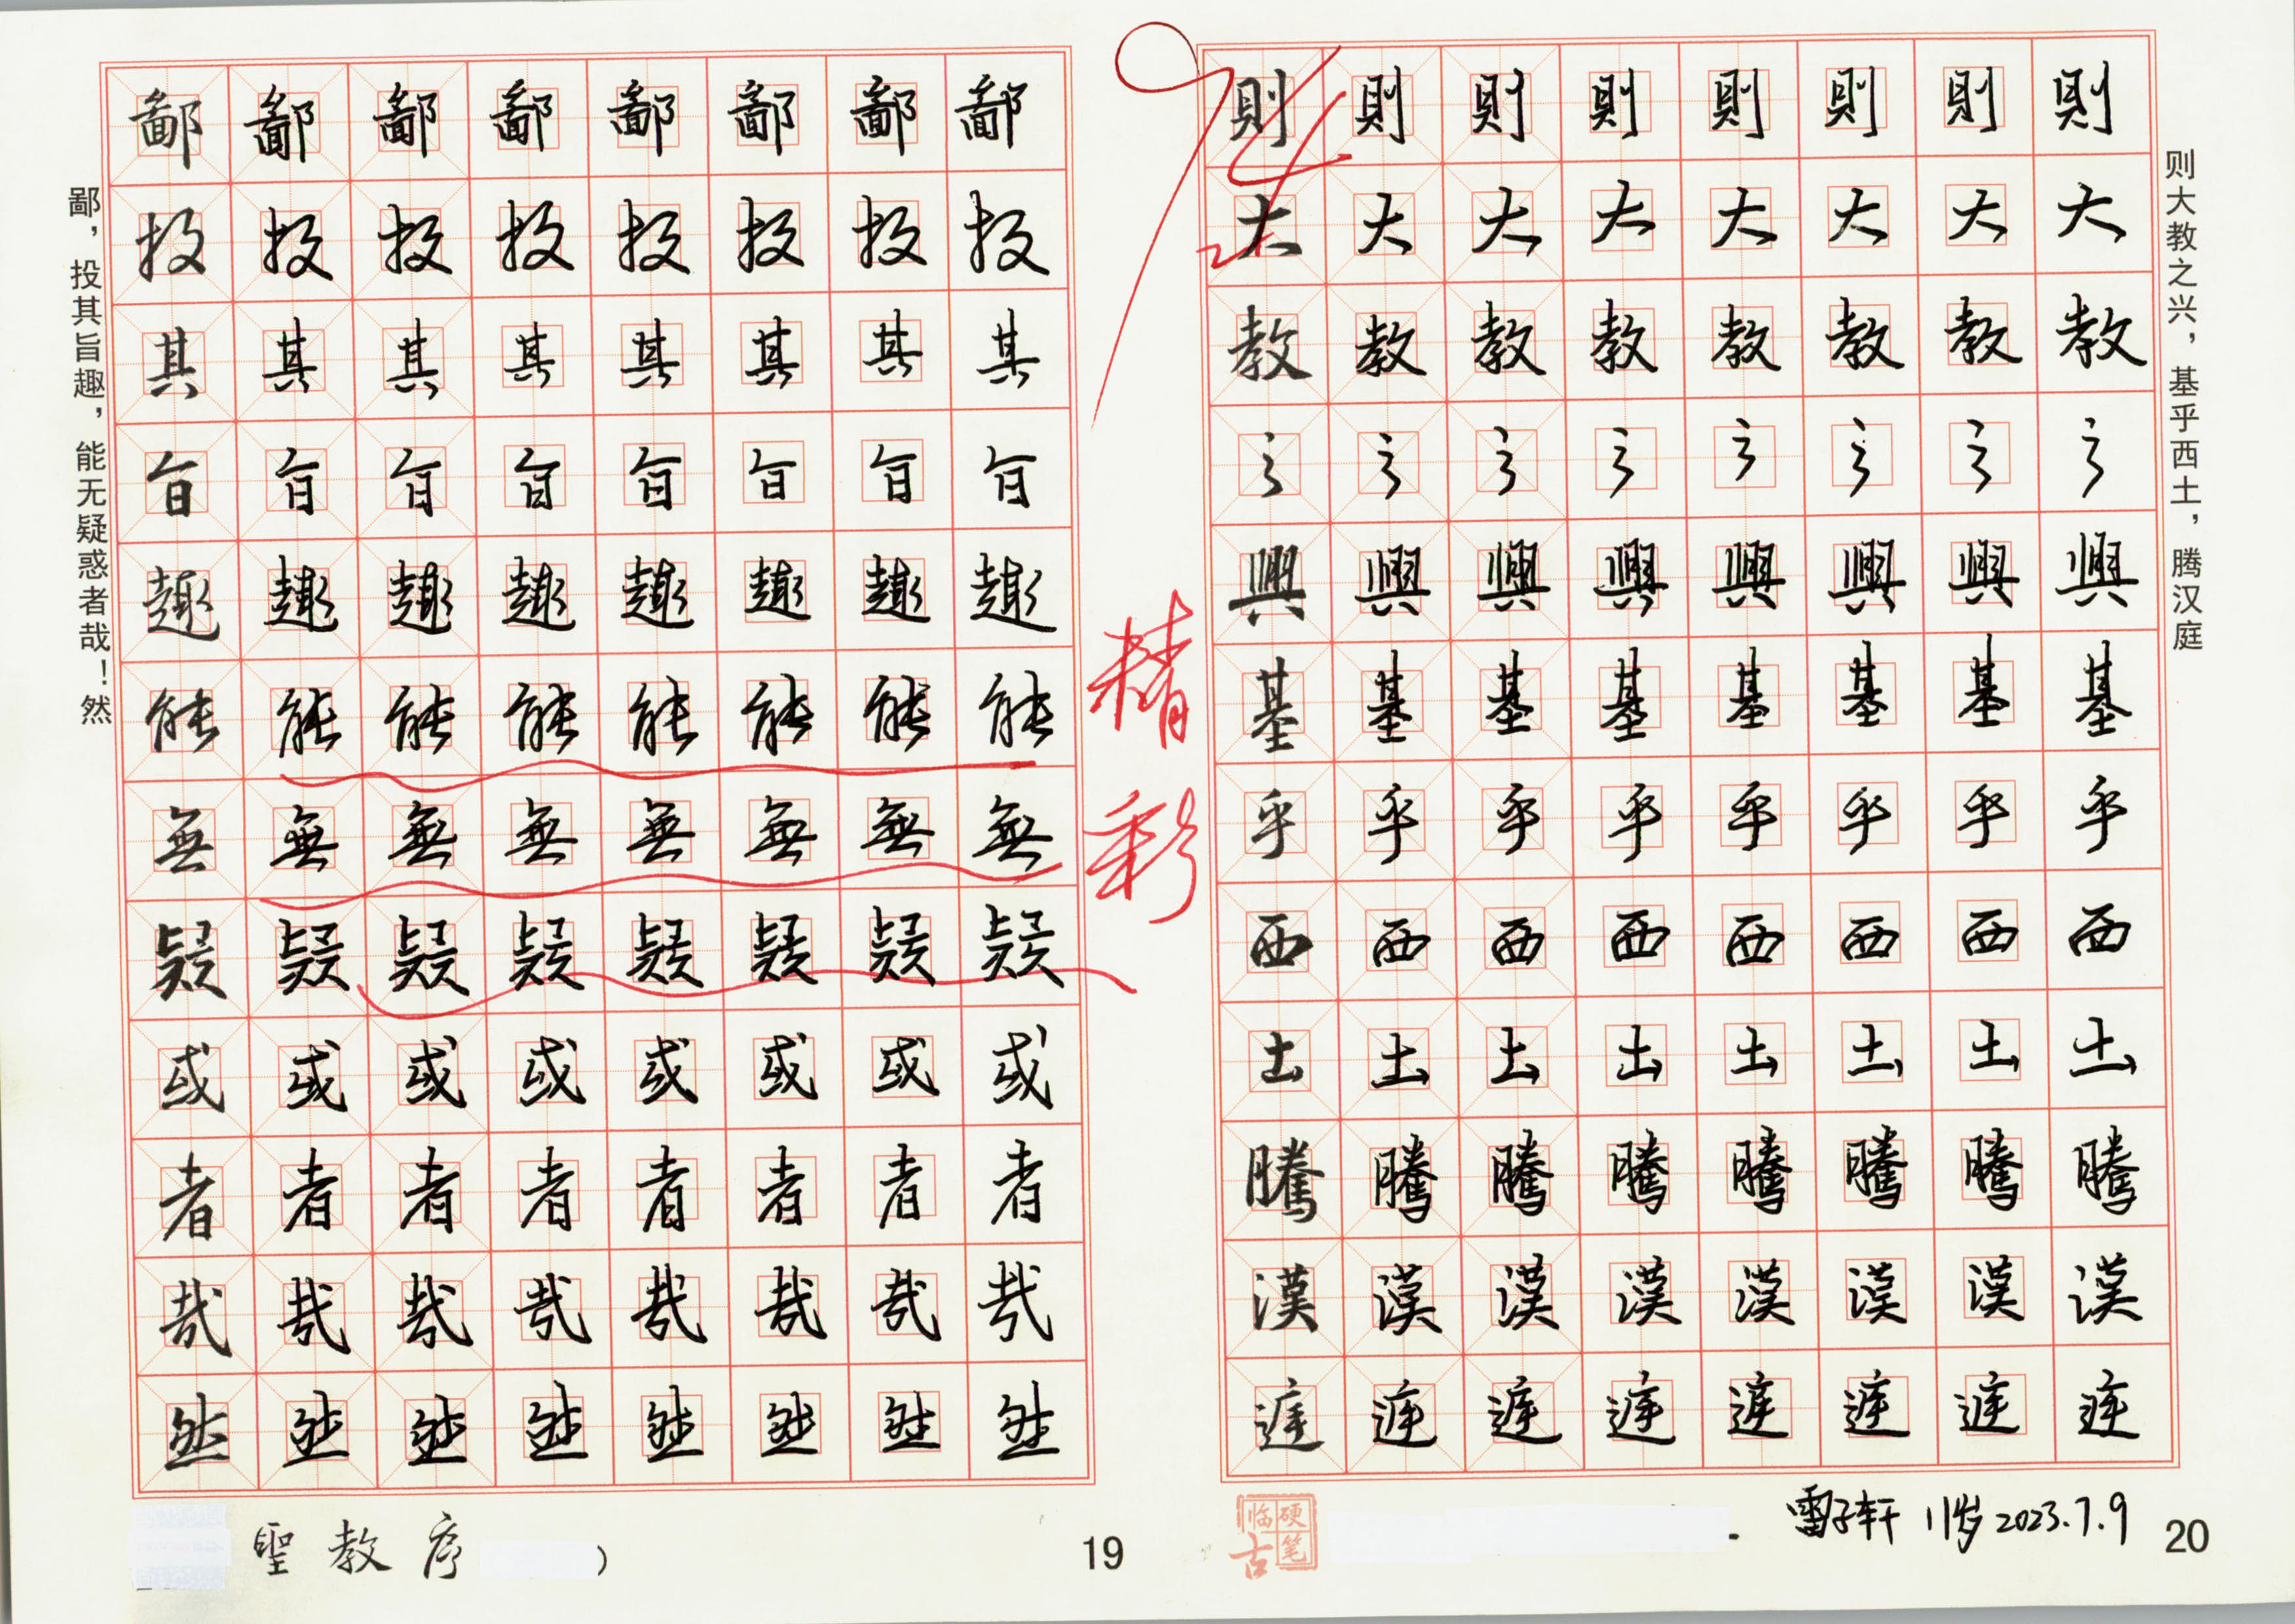 鄙，投其旨趣，能无疑惑者哉！然
鄙鄙鄙鄙鄙鄙鄙鄙
投投投投投投投投
其其其其其其其其
旨旨旨旨旨旨旨旨
趣趣趣趣趣趣趣趣
能能能能能能能能
無無無無無無無無
疑疑疑疑疑疑疑疑
或或或或或或或或
者者者者者者者者
哉哉哉哉哉哉哉哉
然然然然然然然然
聖教序
)
19
精彩
则大教之兴，基乎西土，腾汉庭
則則則則則則則則
大大大大大大大大
教教教教教教教教
之之之之之之之之
興興興興興興興興
基基基基基基基基
乎乎乎乎乎乎乎乎
西西西西西西西西
土土土土土土土土
騰騰騰騰騰騰騰騰
漢漢漢漢漢漢漢漢
庭庭庭庭庭庭庭庭
硬笔临古
雷子轩 11岁 2023.7.9
20